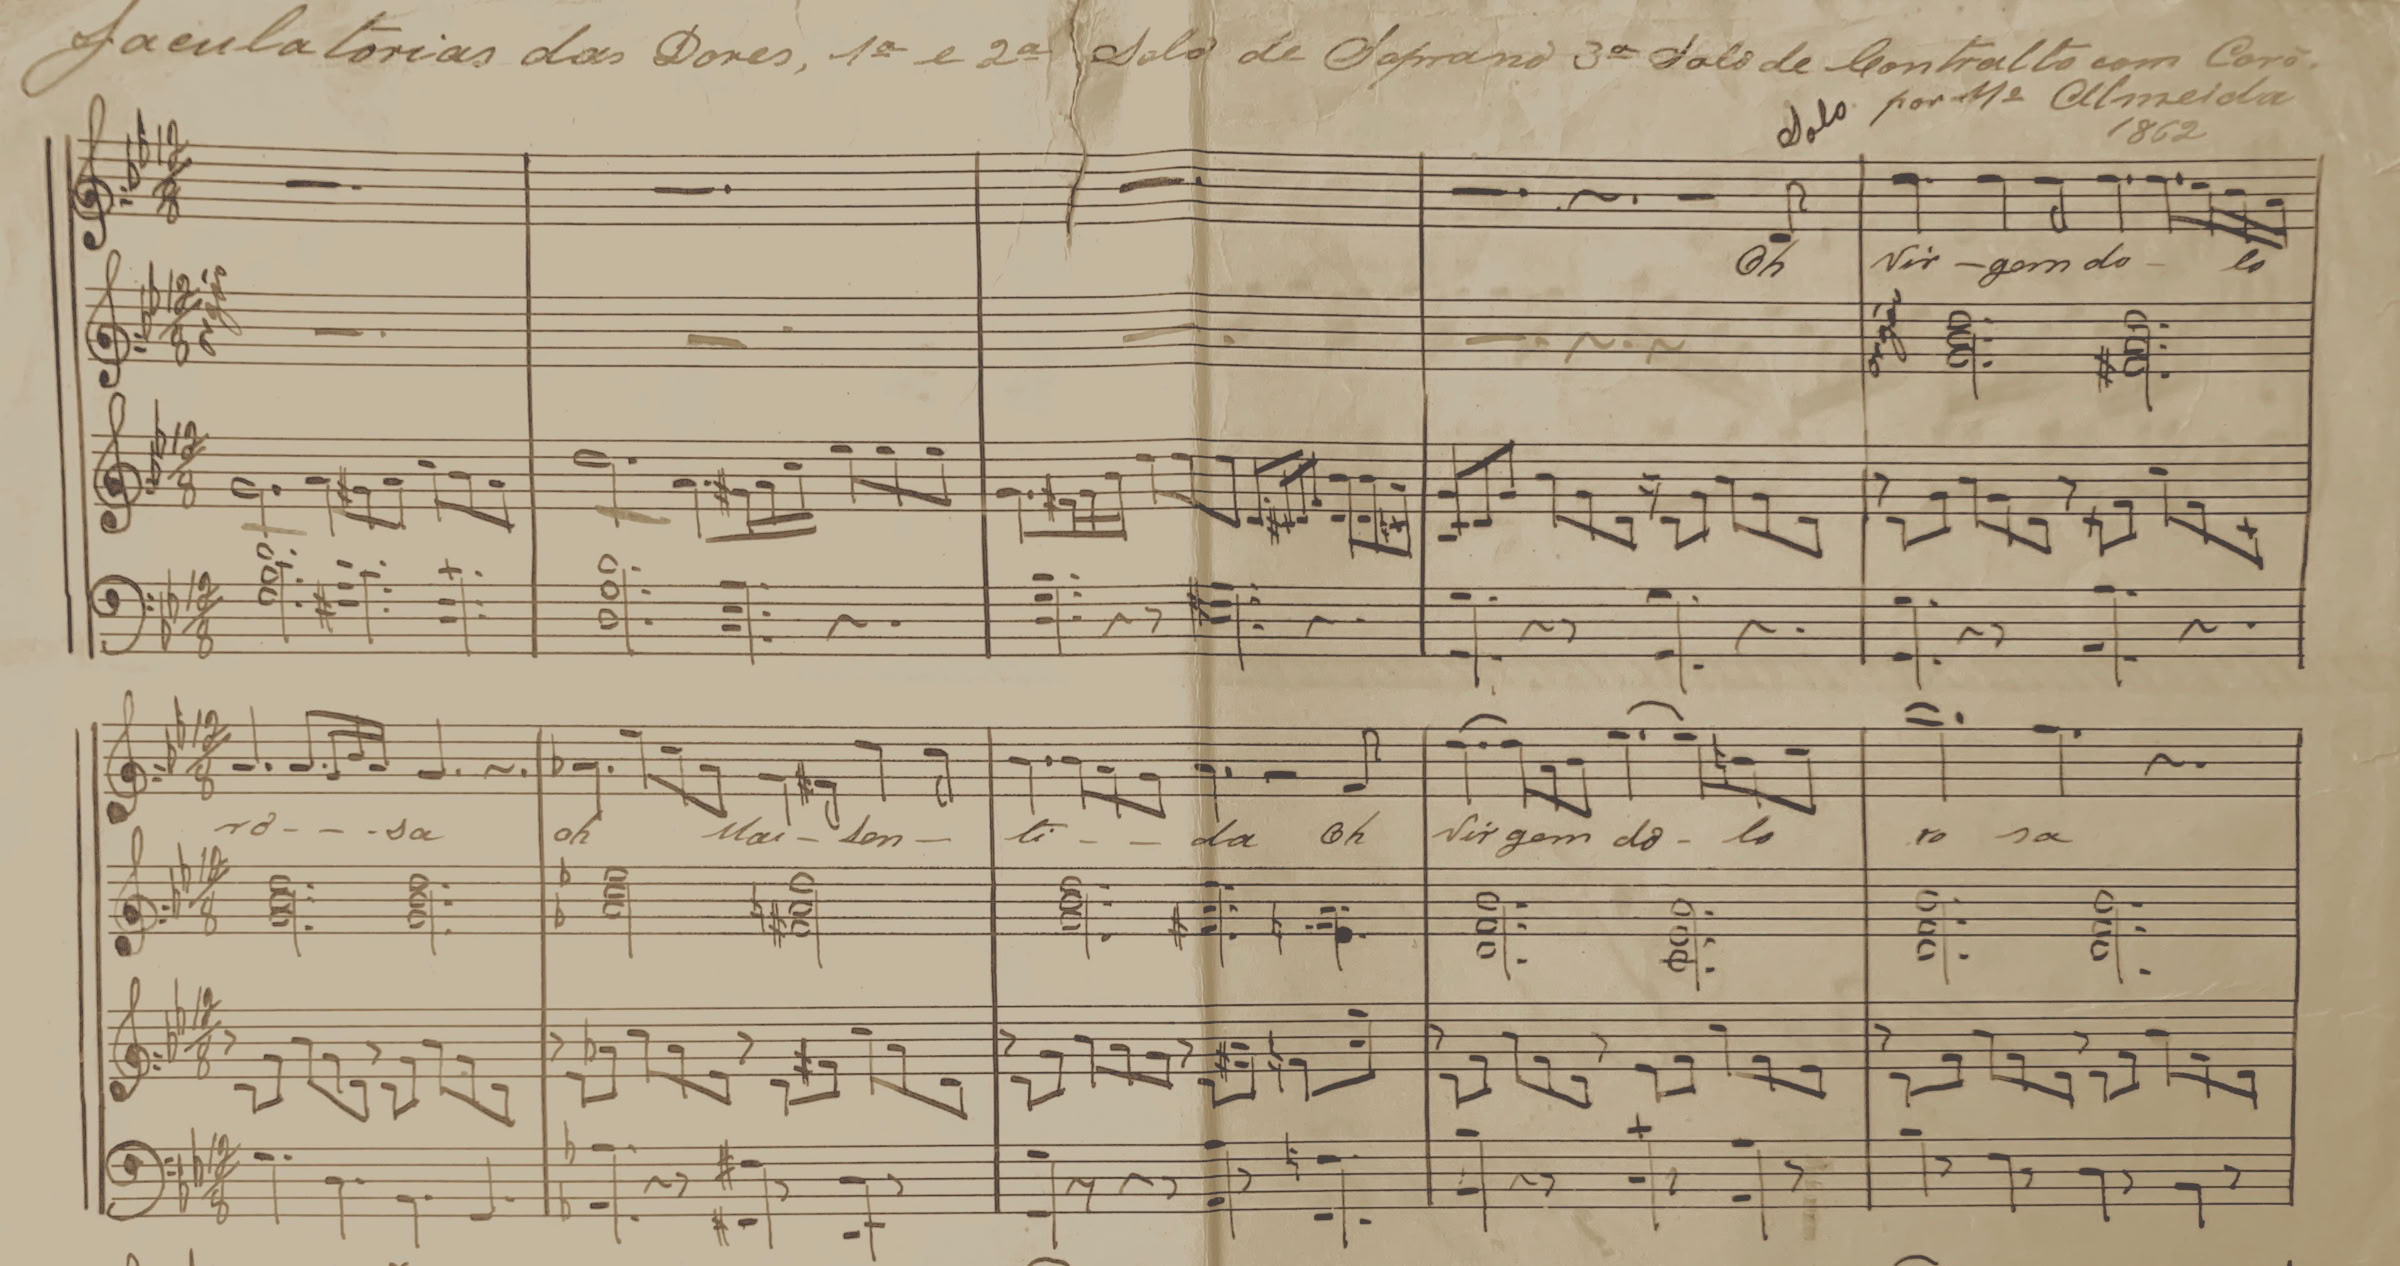 Jaculatorias das Dores, 1ª e 2ª Solo de Soprano 3ª Solo de Contralto com Coro.
por Mª Almeida
1862
Solo
12
8
Oh Vir - gem do - lo
orgão
ro - - - sa oh Mai - sen - ti - - da Oh Virgem do - lo ro sa